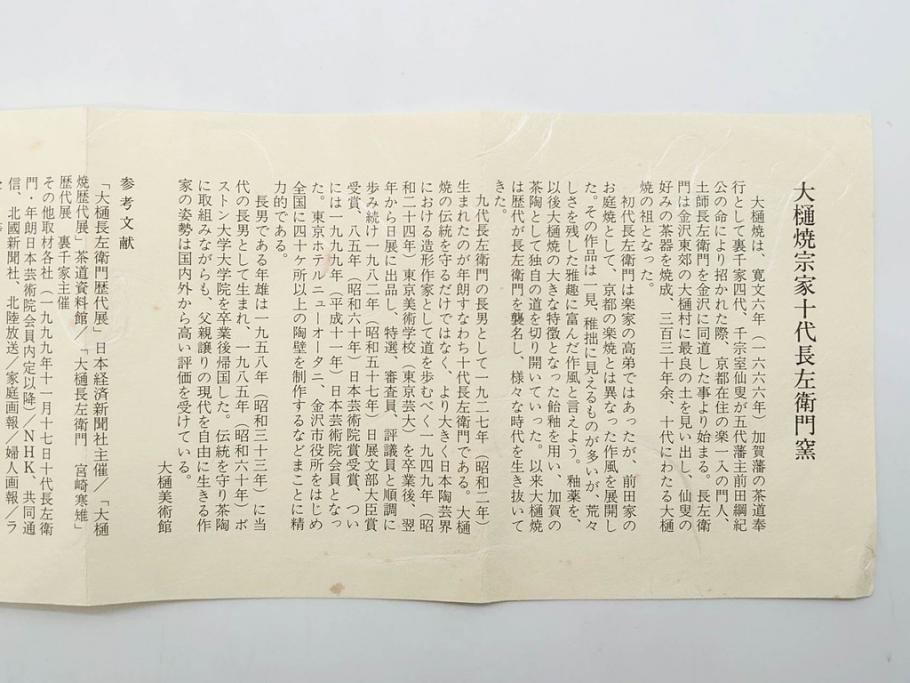 大樋焼宗家十代長左衛門窯
大樋焼は、寛文六年（一六六六年）加賀藩の茶道奉
行として裏千家四代、千宗室仙叟が五代藩主前田綱紀
公の命により招かれた際、京都在住の楽一入の門人、
土師長左衛門を金沢に同道した事より始まる。長左衛
門は金沢東郊の大樋村に最良の土を見い出し、仙叟の
好みの茶器を焼成、三百三十年余、十代にわたる大樋
焼の祖となった。
初代長左衛門は楽家の高弟ではあったが、前田家の
お庭焼として、京都の楽焼とは異なった作風を展開し
た。その作品は一見、稚拙に見えるものが多いが、荒々
しさを残した雅趣に富んだ作風と言えよう。釉薬を、
以後大樋焼の大きな特徴となった飴釉を用い、加賀の
茶陶として独自の道を切り開いていった。以来大樋焼
は歴代が長左衛門を襲名し、様々な時代を生き抜いて
きた。
九代長左衛門の長男として一九二七年（昭和二年）
生まれたのが年朗すなわち十代長左衛門である。大樋
焼の伝統を守るだけではなく、より大きく日本陶芸界
における造形作家として道を歩むべく一九四九年（昭
和二十四年）東京美術学校（東京芸大）を卒業後、翌
年から日展に出品し、特選、審査員、評議員と順調に
歩み続け一九八二年（昭和五十七年）日展文部大臣賞
受賞、八五年（昭和六十年）日本芸術院賞受賞、つい
には一九九九年（平成十一年）日本芸術院会員となっ
た。東京ホテルニューオータニ、金沢市役所をはじめ
全国に四十ヶ所以上の陶壁を制作するなどまことに精
力的である。
長男である年雄は一九五八年（昭和三十三年）に当
代の長男として生まれ、一九八五年（昭和六十年）ボ
ストン大学大学院を卒業後帰国した。伝統を守り茶陶
に取組みながらも、父親譲りの現代を自由に生きる作
家の姿勢は国内外から高い評価を受けている。
大樋美術館
参考文献
「大樋長左衛門歴代展」日本経済新聞社主催／「大樋
焼歴代展」茶道資料館／「大樋長左衛門　宮崎寒雉」
歴代展　裏千家主催
その他取材各社（一九九九年十一月十七日十代長左衛
門・年朗日本芸術院会員内定以降）／NHK、共同通
信、北國新聞社、北陸放送／家庭画報／婦人画報／ラ